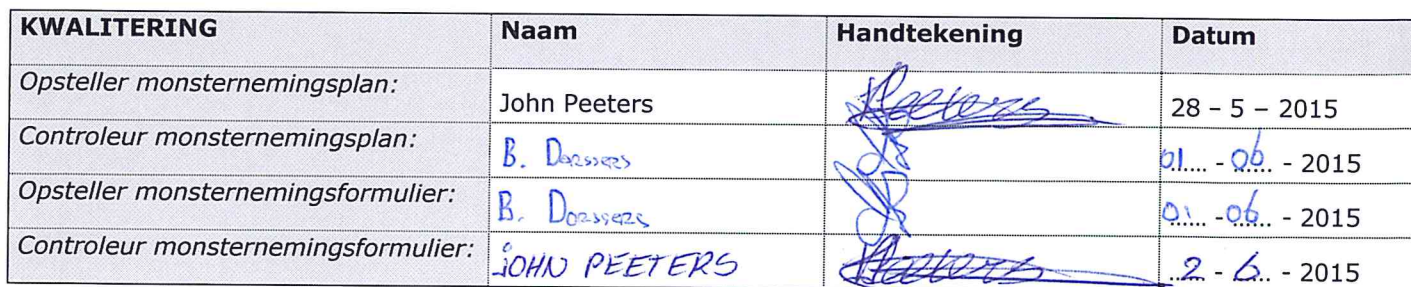 KWALITERING Naam Handtekening Datum
Opsteller monsternemingsplan: John Peeters Peeters 28 – 5 – 2015
Controleur monsternemingsplan: B. Dorssers 01 - 06 - 2015
Opsteller monsternemingsformulier: B. Dorssers 01 - 06 - 2015
Controleur monsternemingsformulier: JOHN PEETERS Peeters 2 - 6 - 2015